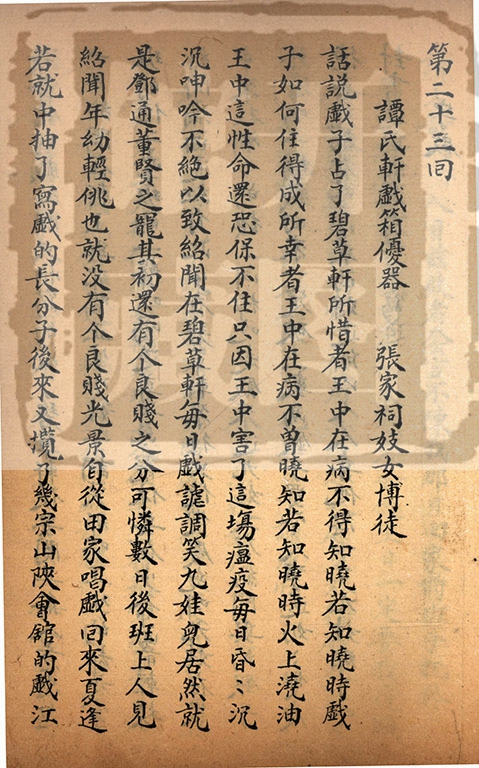 第二十三囘
譚氏軒戲箱優器 張家祠妓女博徒
話說戲子占了碧草軒所惜者王中在病不得知曉若知曉時戲
子如何住得成所幸者王中在病不曾曉知若知曉時火上澆油
王中這性命還恐保不住只因王中害了這場瘟疫每日昏〻沉
沉呻吟不絕以致紹聞在碧草軒每日戲謔調笑九娃兒居然就
是鄧通董賢之寵其初還有个良賤之分可憐數日後班上人見
紹聞年幼輕佻也就没有个良賤光景自從田家唱戲回來夏逢
若就中抽了寫戲的長分子後來又攬了幾宗山陜會舘的戲江